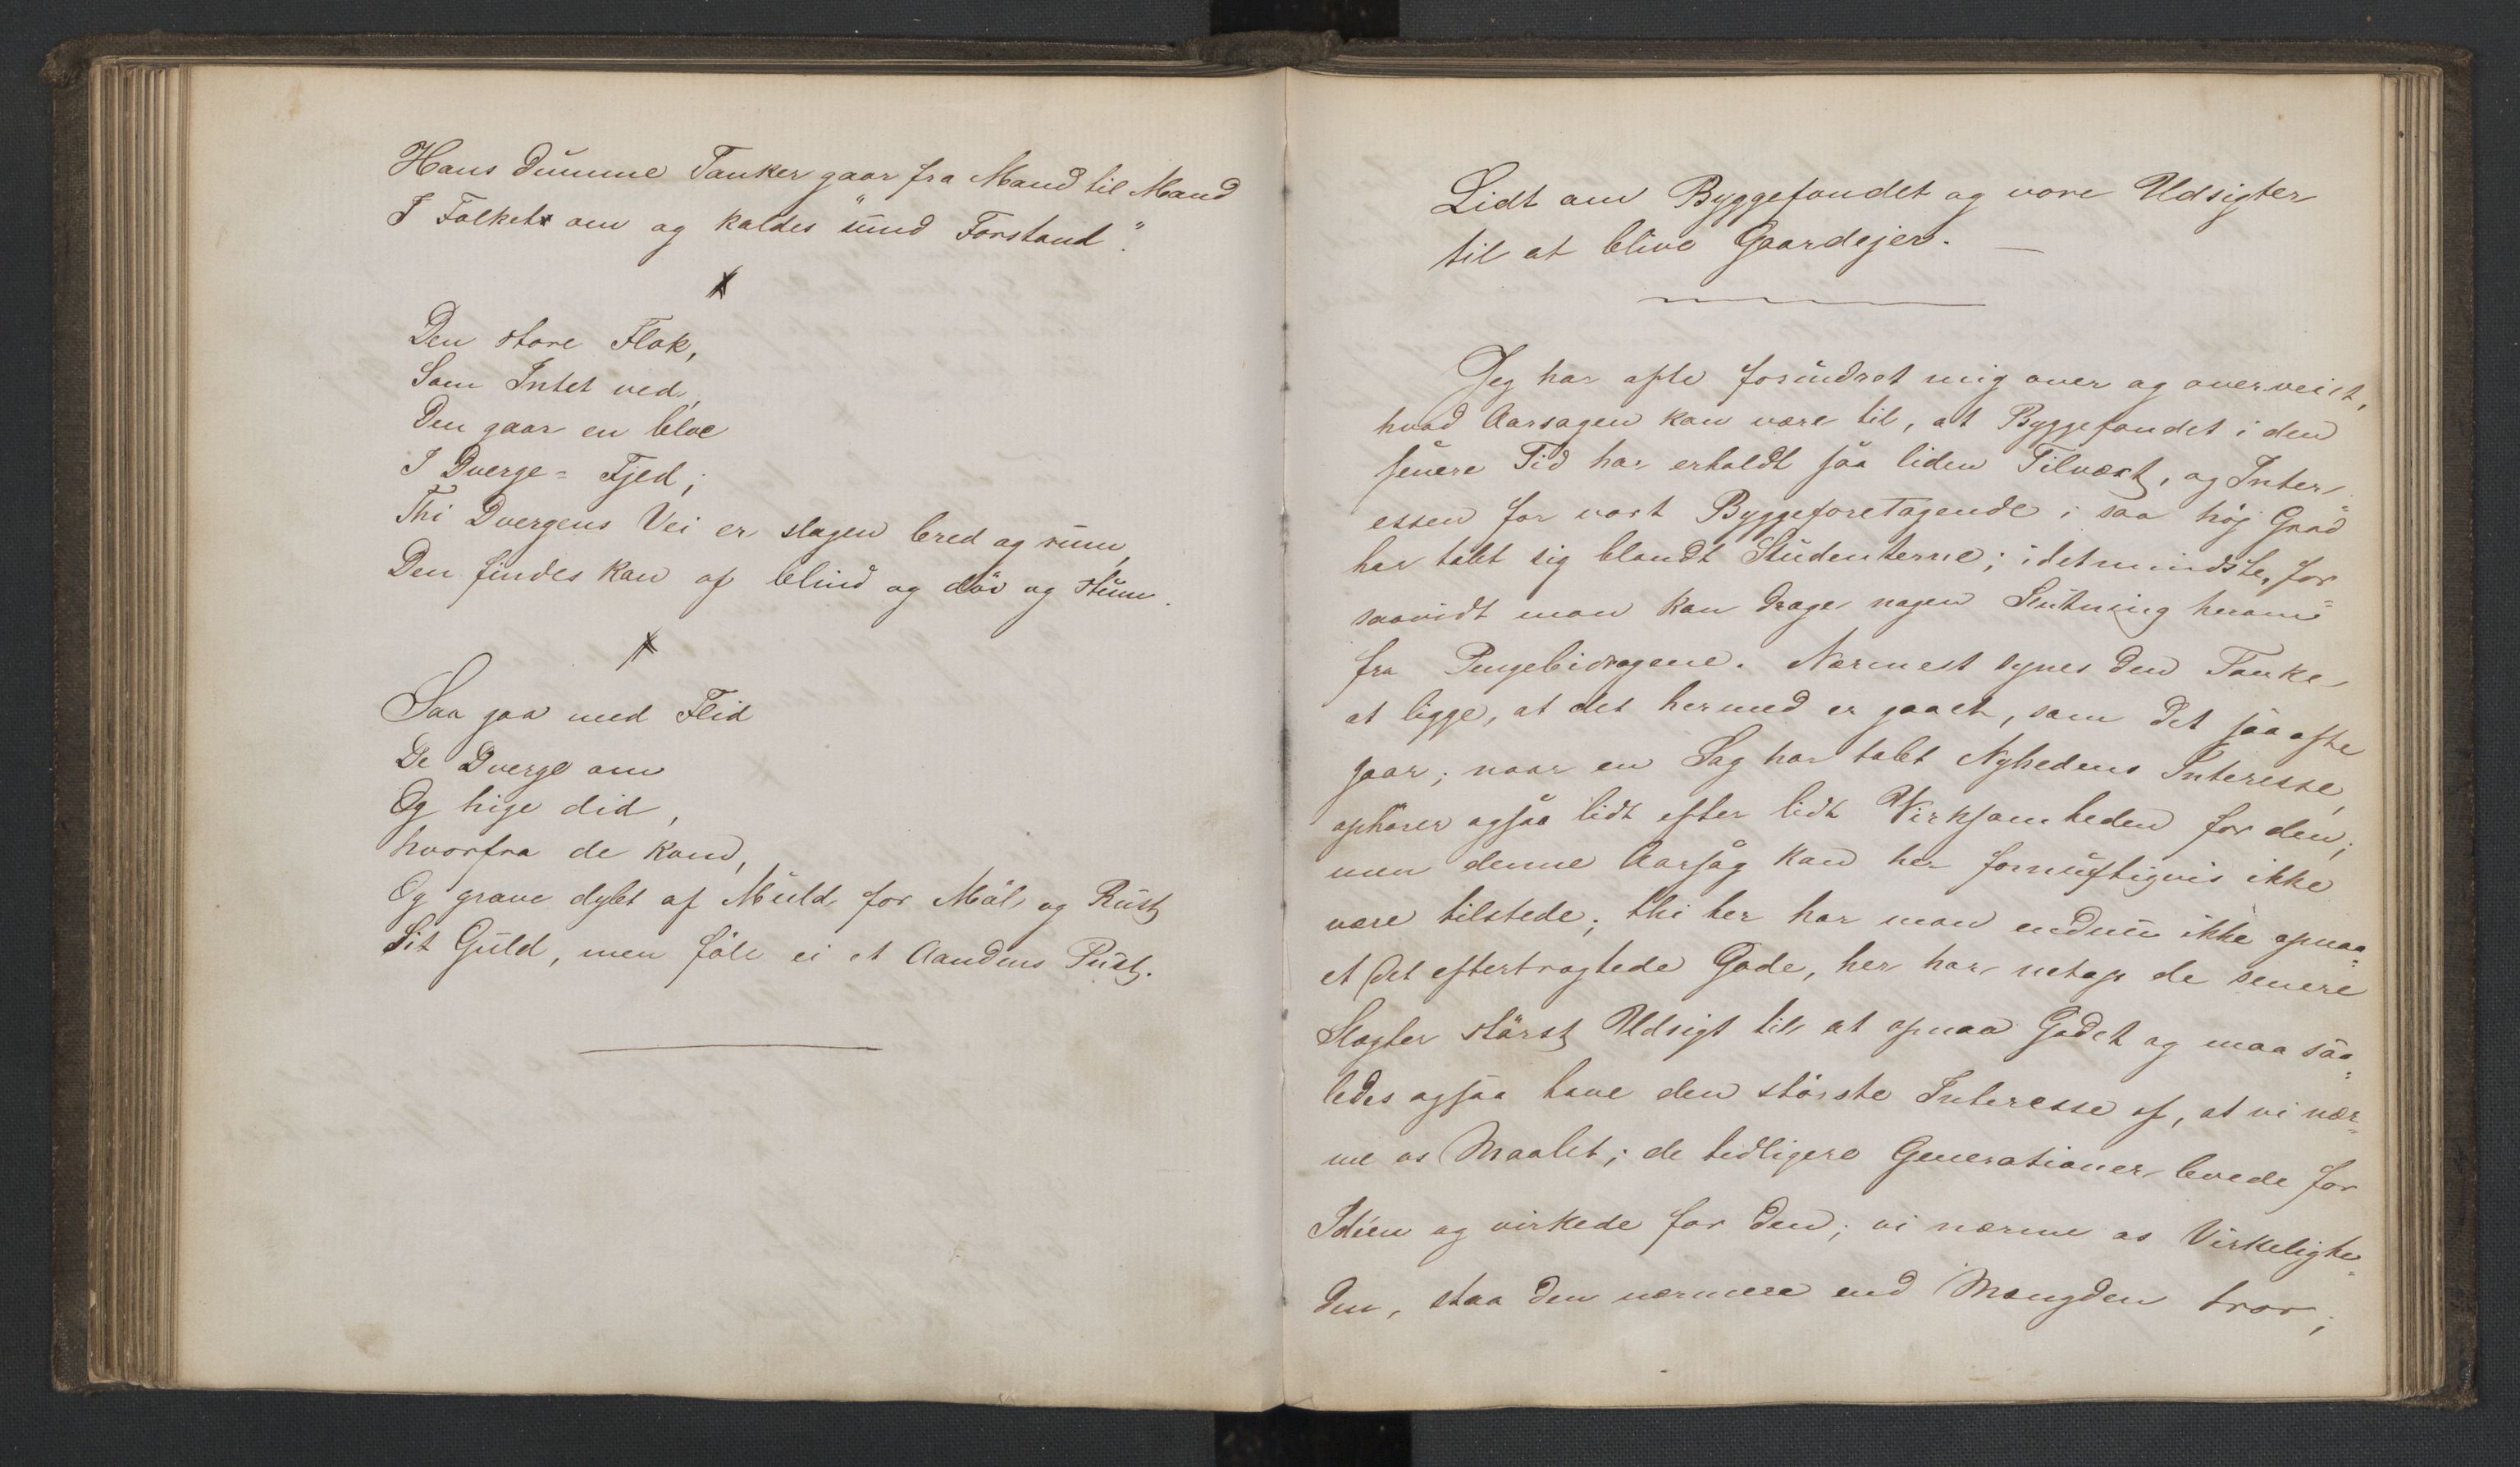 Hans dumme Tanker gaar fra Mand til Mand
I Folket om og kaldes "sund Forstand".
Den store Flok,
Som Intet ved,
Den gaar en bloc
I Dverge= Fjed;
Thi Dvergens Vei er slagen bred og rum,
Den findes kan af blind og döv og stum.
Saa gaa med Flid
De Dverge om
Og hige did,
hvorfra de kom,
Og grave dybt af Muld for Möl og Rust
Sit Guld, men föle ei et Aandens Pust.
Lidt om Byggefondet og vore Udsigter
til at blive Gaardejer. —
Jeg har ofte forundret mig over og overveiet,
hvad Aarsagen kan være til, at Byggefondet i den
senere Tid har erholdt saa liden Tilvæxt, og Inter-
essen for vort Byggeforetagende i saa høj Grad
har tabt sig blandt Studenterne; idetmindste, for
saavidt man kan drage nogen Slutning herom
fra Pengebidragene. Nærmest synes den Tanke
at ligge, at det hermed er gaaet, som det saa ofte
gaar; naar en Sag har tabt Nyhedens Interesse,
ophører ogsaa lidt efter lidt Virksomheden for den;
men denne Aarsag kan her fornuftigvis ikke
være tilstede; thi her har man endnu ikke opnaa=
et det eftertragtede Gode, her har netop de senere
Slægter størst Udsigt til at opnaa Godet og maa saa=
ledes ogsaa have den største Interesse af, at vi nær=
me os Maalet; de tidligere Generationer levede for
Idéen og virkede for den; vi nærme os Virkelighe=
den, staa den nærmere end Mængden tror;